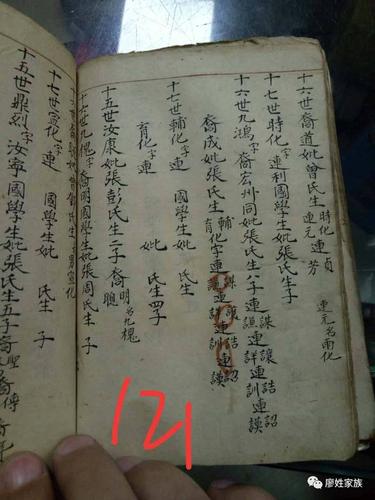 十六世裔道妣曾氏生 時化連貞 連元 芳 連元名雨化
十七世時化字連利國學生妣張氏生子
十六世九鴻字裔宏州同妣張氏生六子連謀連讓連詰連詔 連譙連詳連訓連謨
裔成妣張氏生 輔育化字連
十七世輔化字連 國學生妣 氏生
育化字連 妣 氏生四子
十五世汝康妣張彭氏生二子裔明名九槐 裔聰
十六世九槐字裔明國學生妣張周氏生 子
十七世宣化字連 國學生妣 氏生 子
十五世鼎烈字汝寧國學生妣張氏生五子裔聖 裔傳
121
廖姓家族